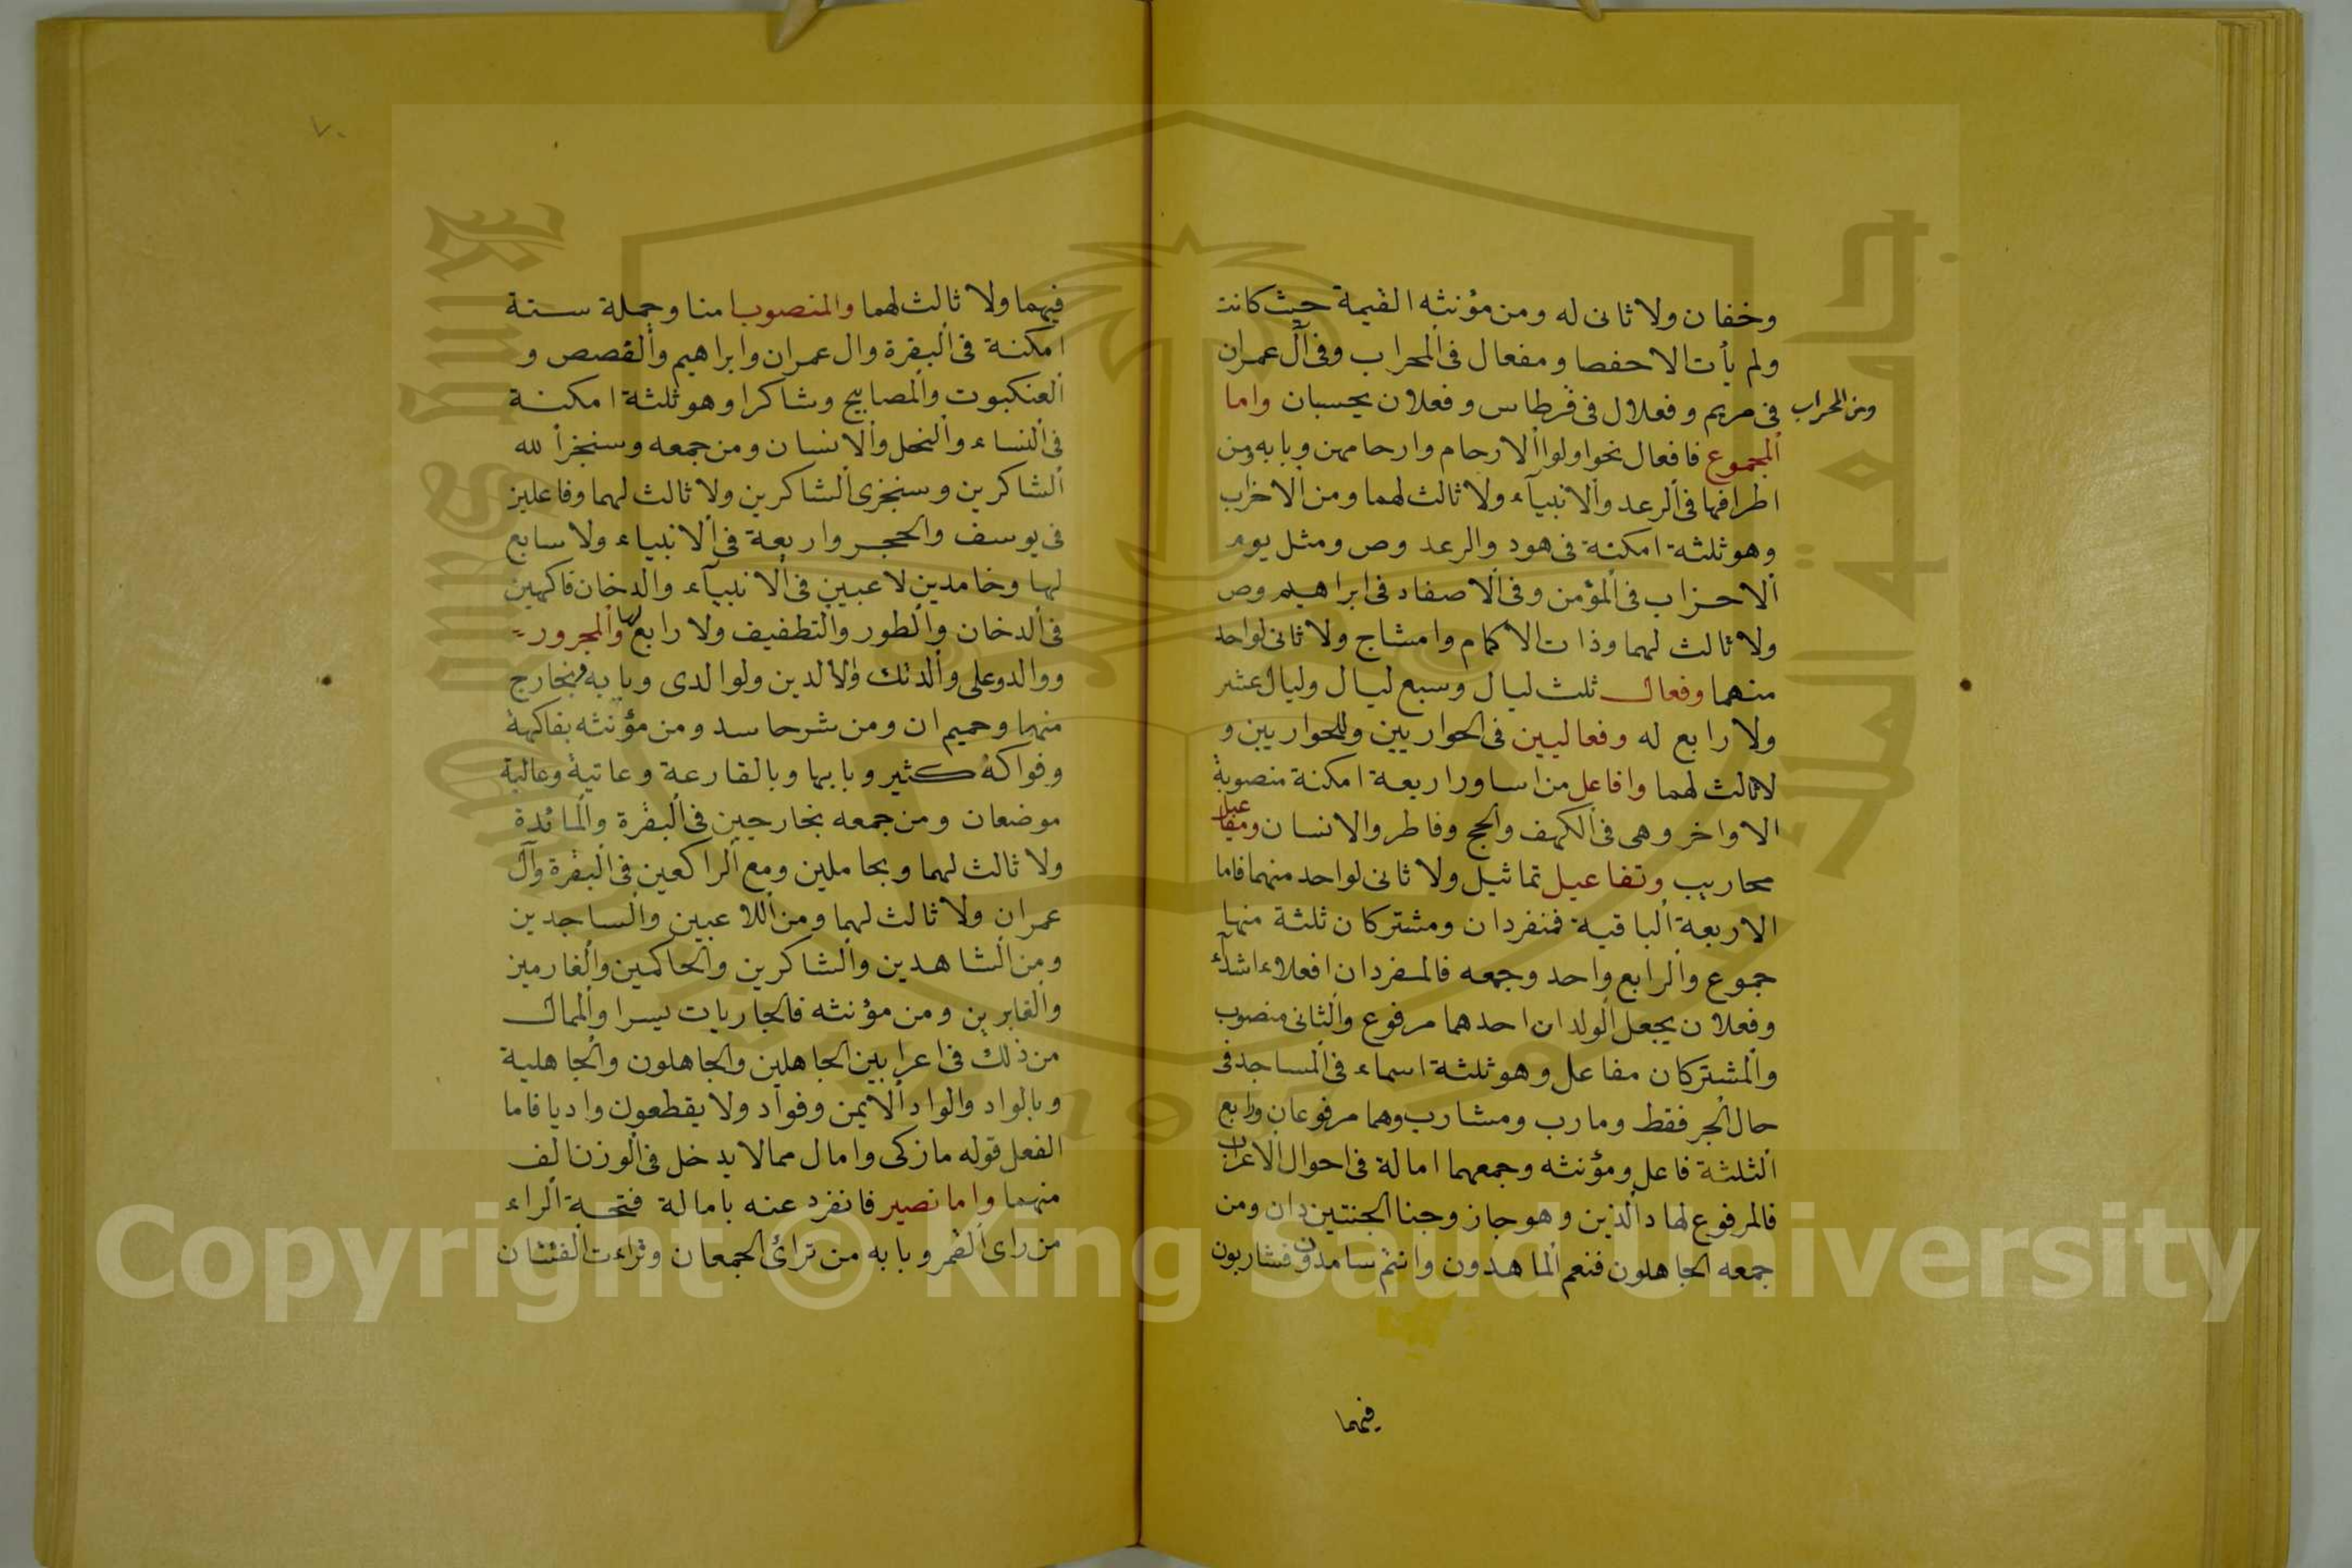 وخفان ولا ثانى له ومن مؤنثه القيمة حيث كانت
ولم يأت الا حفصا ومفعال فى المحراب وفى آل عمران
ومن المحراب
فى مريم وفعلال فى قرطاس وفعلان بحسبان واما
المجموع فافعال نحو اولوا الارحام وارحامهن وبابه ومن
اطرافها فى الرعد والانبيآء ولا ثالث لهما ومن الاحزاب
وهو ثلثة امكنة فى هود والرعد وص ومثل يوم
الاحزاب فى المؤمن وفى الاصفاد فى ابراهيم وص
ولا ثالث لهما وذات الاكمام وامشاج ولا ثانى لواحد
منهما وفعال ثلث ليال وسبع ليال وليال عشر
ولا رابع له وفعاليين فى الحواريين وللحواريين و
لاثالث لهما وافاعل من اساور اربعة امكنة منصوبة
الاواخر وهى فى الكهف والحج وفاطر والانسان ومفاعيل
محاريب وتفاعيل تماثيل ولا ثانى لواحد منهما فاما
الاربعة الباقية فمنفردان ومشتركان ثلثة منها
جموع والرابع واحد وجمعه فالمنفردان افعلاء اشدآء
وفعلان يجعل الولدان احدهما مرفوع والثانى منصوب
والمشتركان مفاعل وهو ثلثة اسماء فى المساجد فى
حال الجر فقط ومارب ومشارب وهما مرفوعان ورابع
الثلثة فاعل ومؤنثه وجمعهما امالة فى احوال الاعراب
فالمرفوع لهاد الذين وهو جاز وجنا الجنتين دان ومن
جمعه الجاهلون فنعم الماهدون وانتم سامدون فشاربون
فيهما
٧٠
فيهما ولا ثالث لهما والمنصوب امنا وجملة ستة
امكنة فى البقرة وال عمران وابراهيم والقصص و
العنكبوت والمصابيح وشاكرا وهو ثلثة امكنة
فى النساء والنحل والانسان ومن جمعه وسنجزأ لله
الشاكرين وسنجزى الشاكرين ولا ثالث لهما وفاعلين
فى يوسف والحجر واربعة فى الانبياء ولا سابع
لها وخامدين لاعبين فى الانبيآء والدخان فاكهين
فى الدخان والطور والتطفيف ولا رابع لها والمجرور
ووالد وعلى والدتك ولالدين ولوالدى وبابه وبخارج
منهما وحميم ان ومن شر حاسد ومن مؤنثه بفاكهة
وفواكه كثير وبابها وبالقارعة وعاتية وعالية
موضعان ومن جمعه بخارجين فى البقرة والمائدة
ولا ثالث لهما وبحاملين ومع الراكعين فى البقرة وآل
عمران ولا ثالث لهما ومن اللاعبين والساجدين
ومن الشاهدين والشاكرين والحاكمين والغارمين
والغابرين ومن مؤنثه فالجاريات يسرا والممال
من ذلك فى اعرابين الجاهلين والجاهلون والجاهلية
وبالواد والواد الايمن وفواد ولا يقطعون واديا فاما
الفعل قوله مازكى وامال ممالا يدخل فى الوزن الف
منهما واما نصير فانفرد عنه بامالة فتحة الراء
من راى القمر وبابه من ترائ الجمعان وتراءت الفئتان
جامعة الملك سعود
King Saud University
1957
Copyright © King Saud University